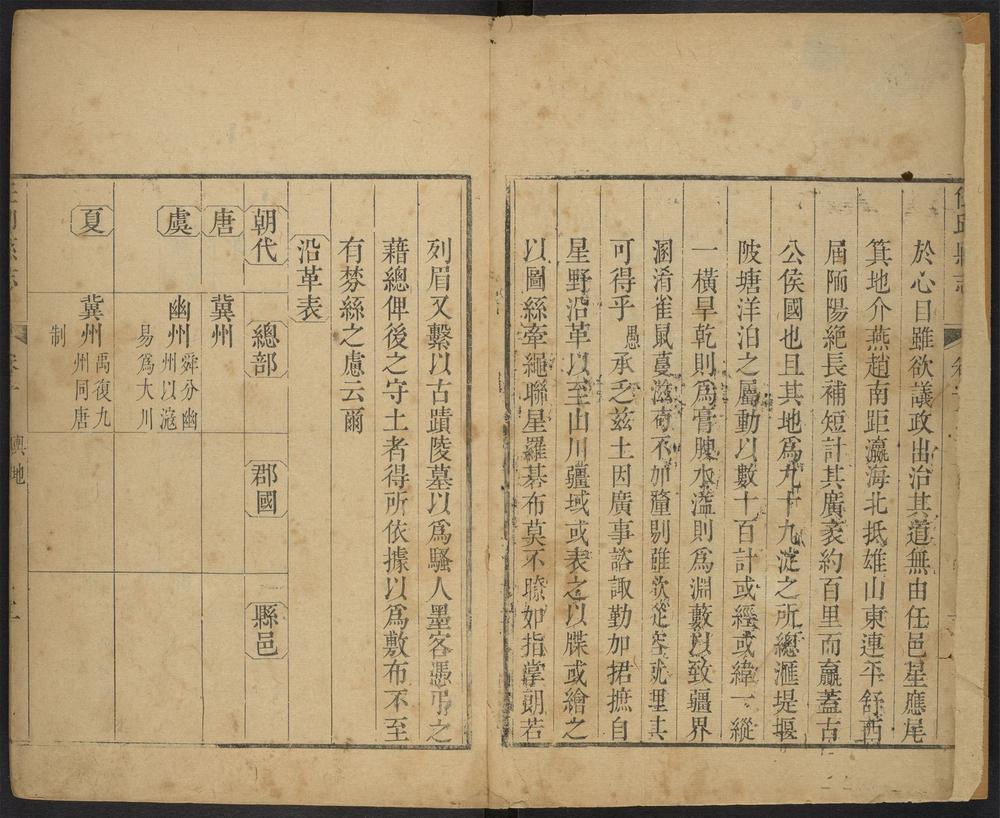 任邱縣志
於心目雖欲議政出治其道無由任邑星應尾
箕地介燕趙南距瀛海北抵雄山東連平舒西
屆陑陽絶長補短計其廣袤約百里而贏蓋古
公侯國也且其地爲九十九淀之所總滙堤堰
陂塘洋泊之屬動以數十百計或經或緯一縱
一橫旱乾則爲膏腴水溢則爲淵藪以致疆界
溷淆雀鼠蔓滋苟不加釐剔雖欲從容就理其
可得乎愚承乏兹土因廣事諮諏勤加捃摭自
星野沿革以至山川疆域或表之以牒或繪之
以圖絲牽繩聯星羅碁布莫不瞭如指掌朗若
列眉又繫以古蹟陵墓以爲騷人墨客憑弔之
藉總俾後之守土者得所依據以爲敷布不至
有棼絲之慮云爾
沿革表
朝代 總部 郡國 縣邑
唐 冀州
虞 幽州 舜分幽州以㓂易爲大川
夏 冀州 禹復九州同唐制
輿地